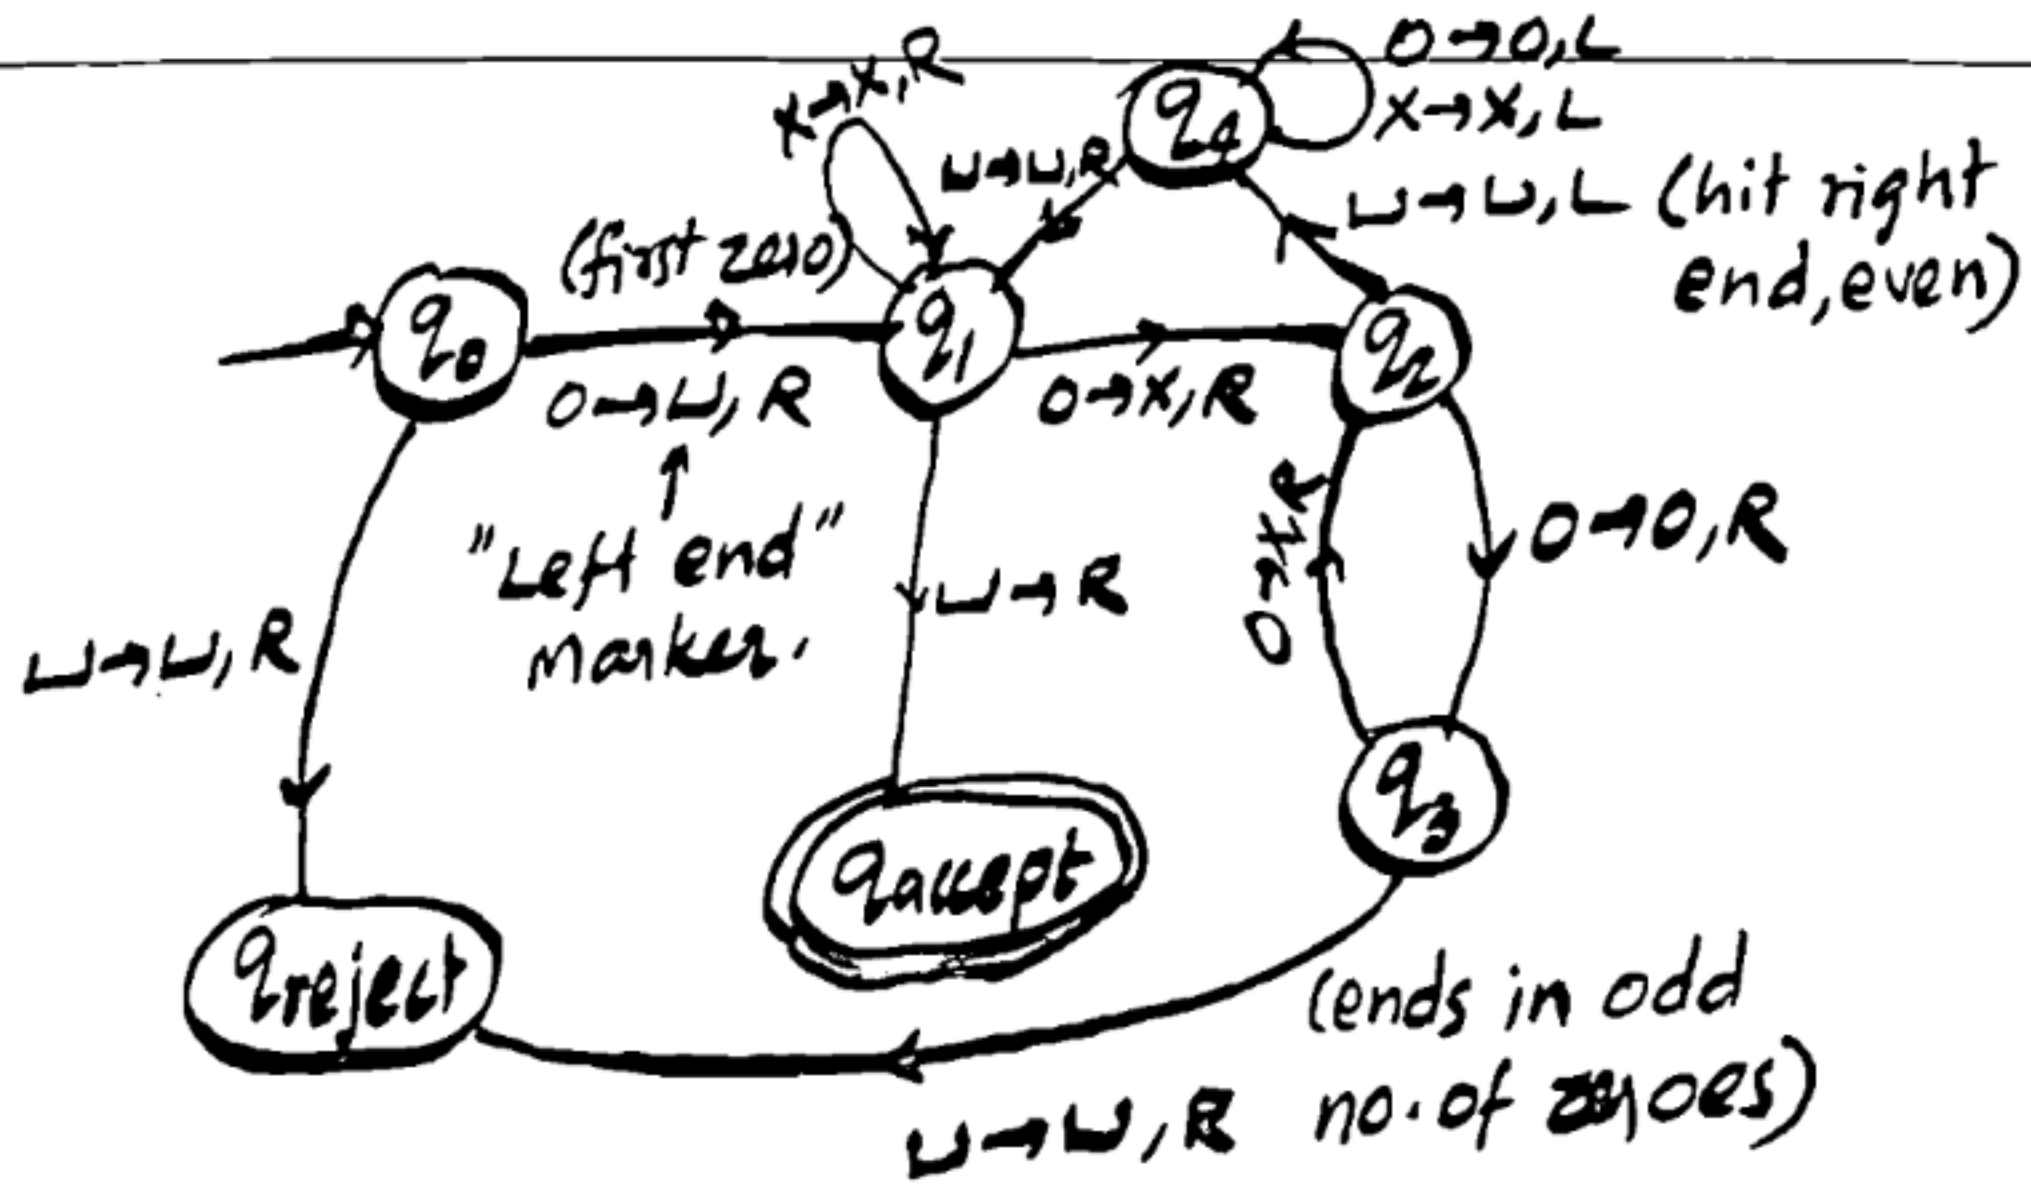 0→0,L
x→x,R
q4
x→x,L
⊔→⊔,R
⊔→⊔,L (hit right
end,even)
(first zero)
q0
q1
q2
0→⊔,R
0→x,R
↑
"Left end"
marker.
0→x,R
0→0,R
⊔→R
⊔→⊔,R
q3
qaccept
qreject
(ends in odd
no. of zeroes)
⊔→⊔,R